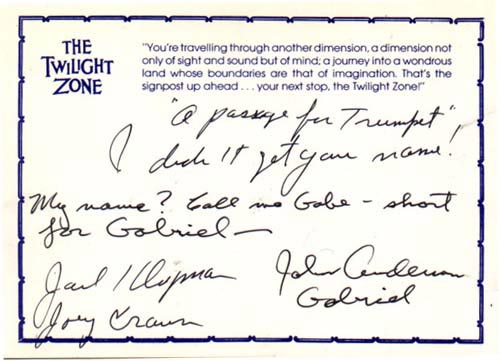 THE
TWILIGHT
ZONE
"You're travelling through another dimension, a dimension not
only of sight and sound but of mind; a journey into a wondrous
land whose boundaries are that of imagination. That's the
signpost up ahead . . . your next stop, the Twilight Zone!"
"A passage for Trumpet",
I didn't get your name!
My name? Call me Gabe - short
for Gabriel -
Jack Klugman
Joey Crown
John Anderson
Gabriel